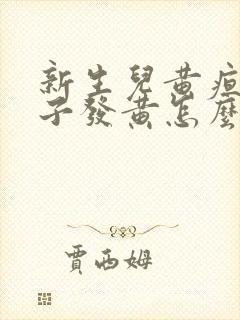 新生兒黃疸
子發黃怎麼
賈西姆